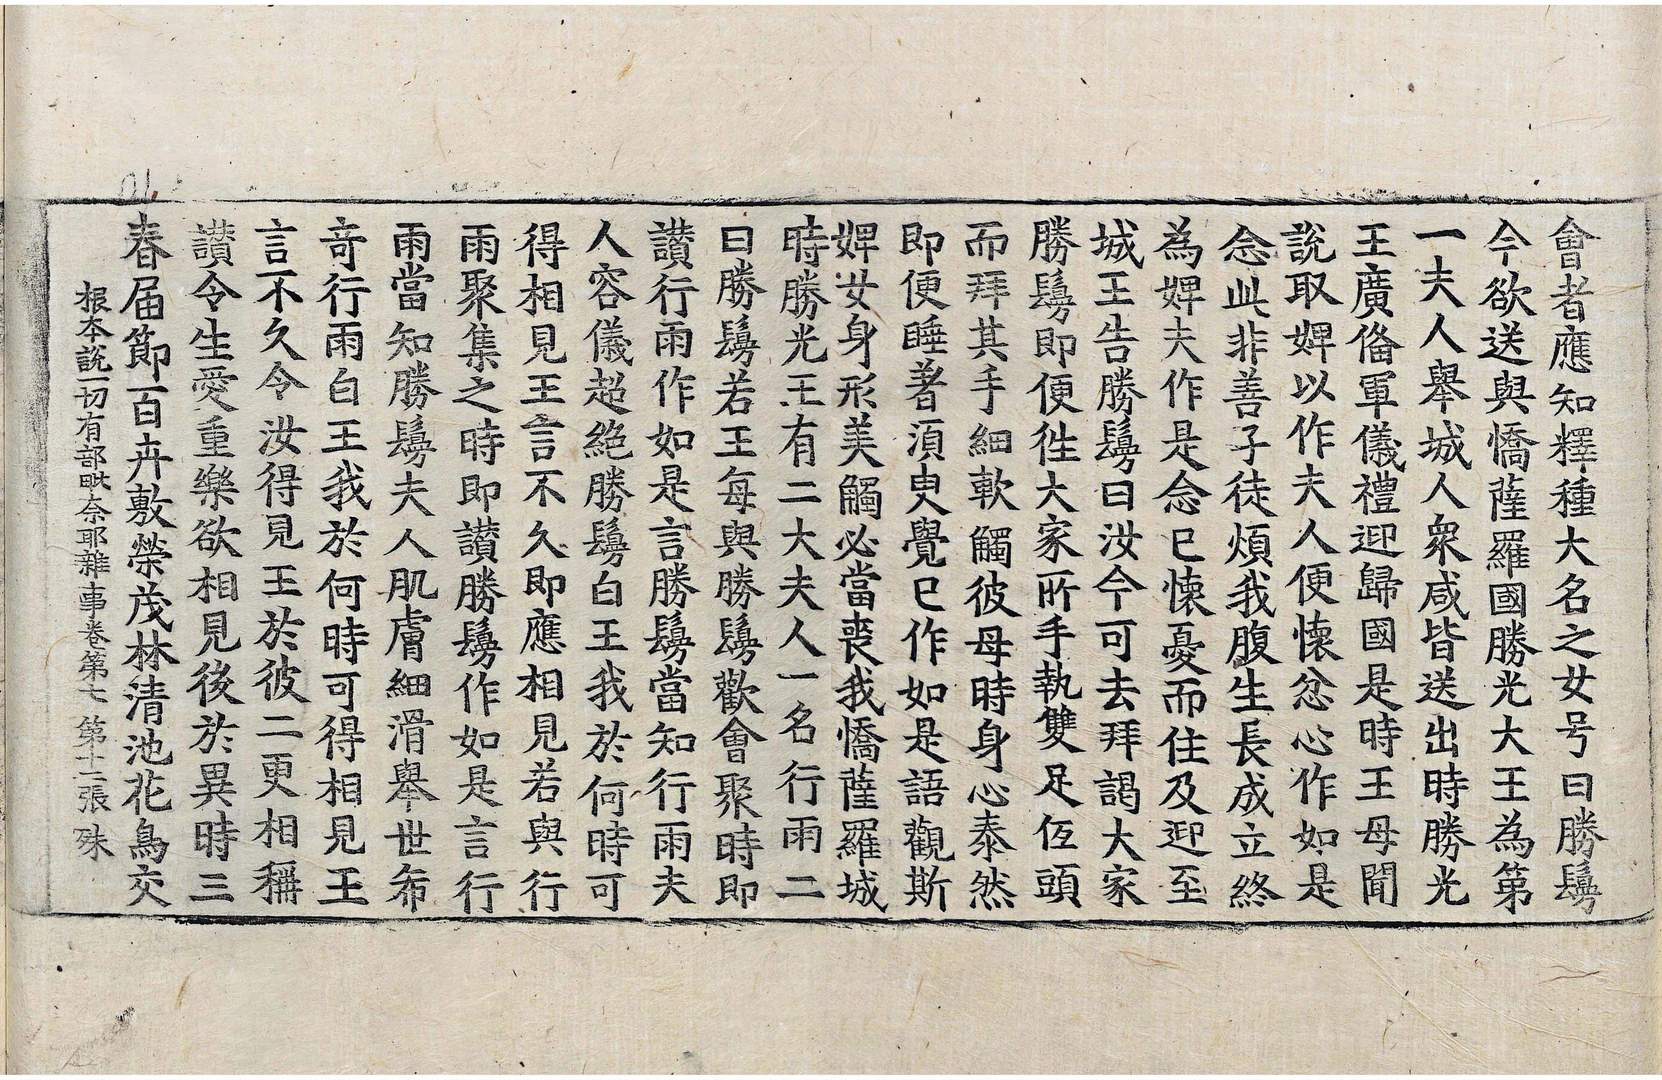 會者應知釋種大名之女号曰勝鬘
今欲送與憍薩羅國勝光大王為第
一夫人舉城人衆咸皆送出時勝光
王廣俻軍儀禮迎歸國是時王母聞
說取婢以作夫人便懷忿心作如是
念此非善子徒煩我腹生長成立終
為婢夫作是念已懷憂而住及迎至
城王告勝鬘曰汝今可去拜謁大家
勝鬘即便徃大家所手執雙足伍頭
而拜其手細軟觸彼母時身心泰然
即便睡著湏臾覺已作如是語觀斯
婢女身形美觸必當喪我憍薩羅城
時勝光王有二大夫人一名行雨二
曰勝鬘若王每與勝鬘歡會聚時即
讃行雨作如是言勝鬘當知行雨夫
人容儀超絶勝鬘白王我於何時可
得相見王言不久即應相見若與行
雨聚集之時即讃勝鬘作如是言行
雨當知勝鬘夫人肌膚細滑舉世希
竒行雨白王我於何時可得相見王
言不久令汝得見王於彼二更相稱
讃令生愛重樂欲相見後於異時三
春屆節百卉敷榮茂林清池花鳥交
根本說一切有部毗奈耶雜事卷第七 第十二張 殊